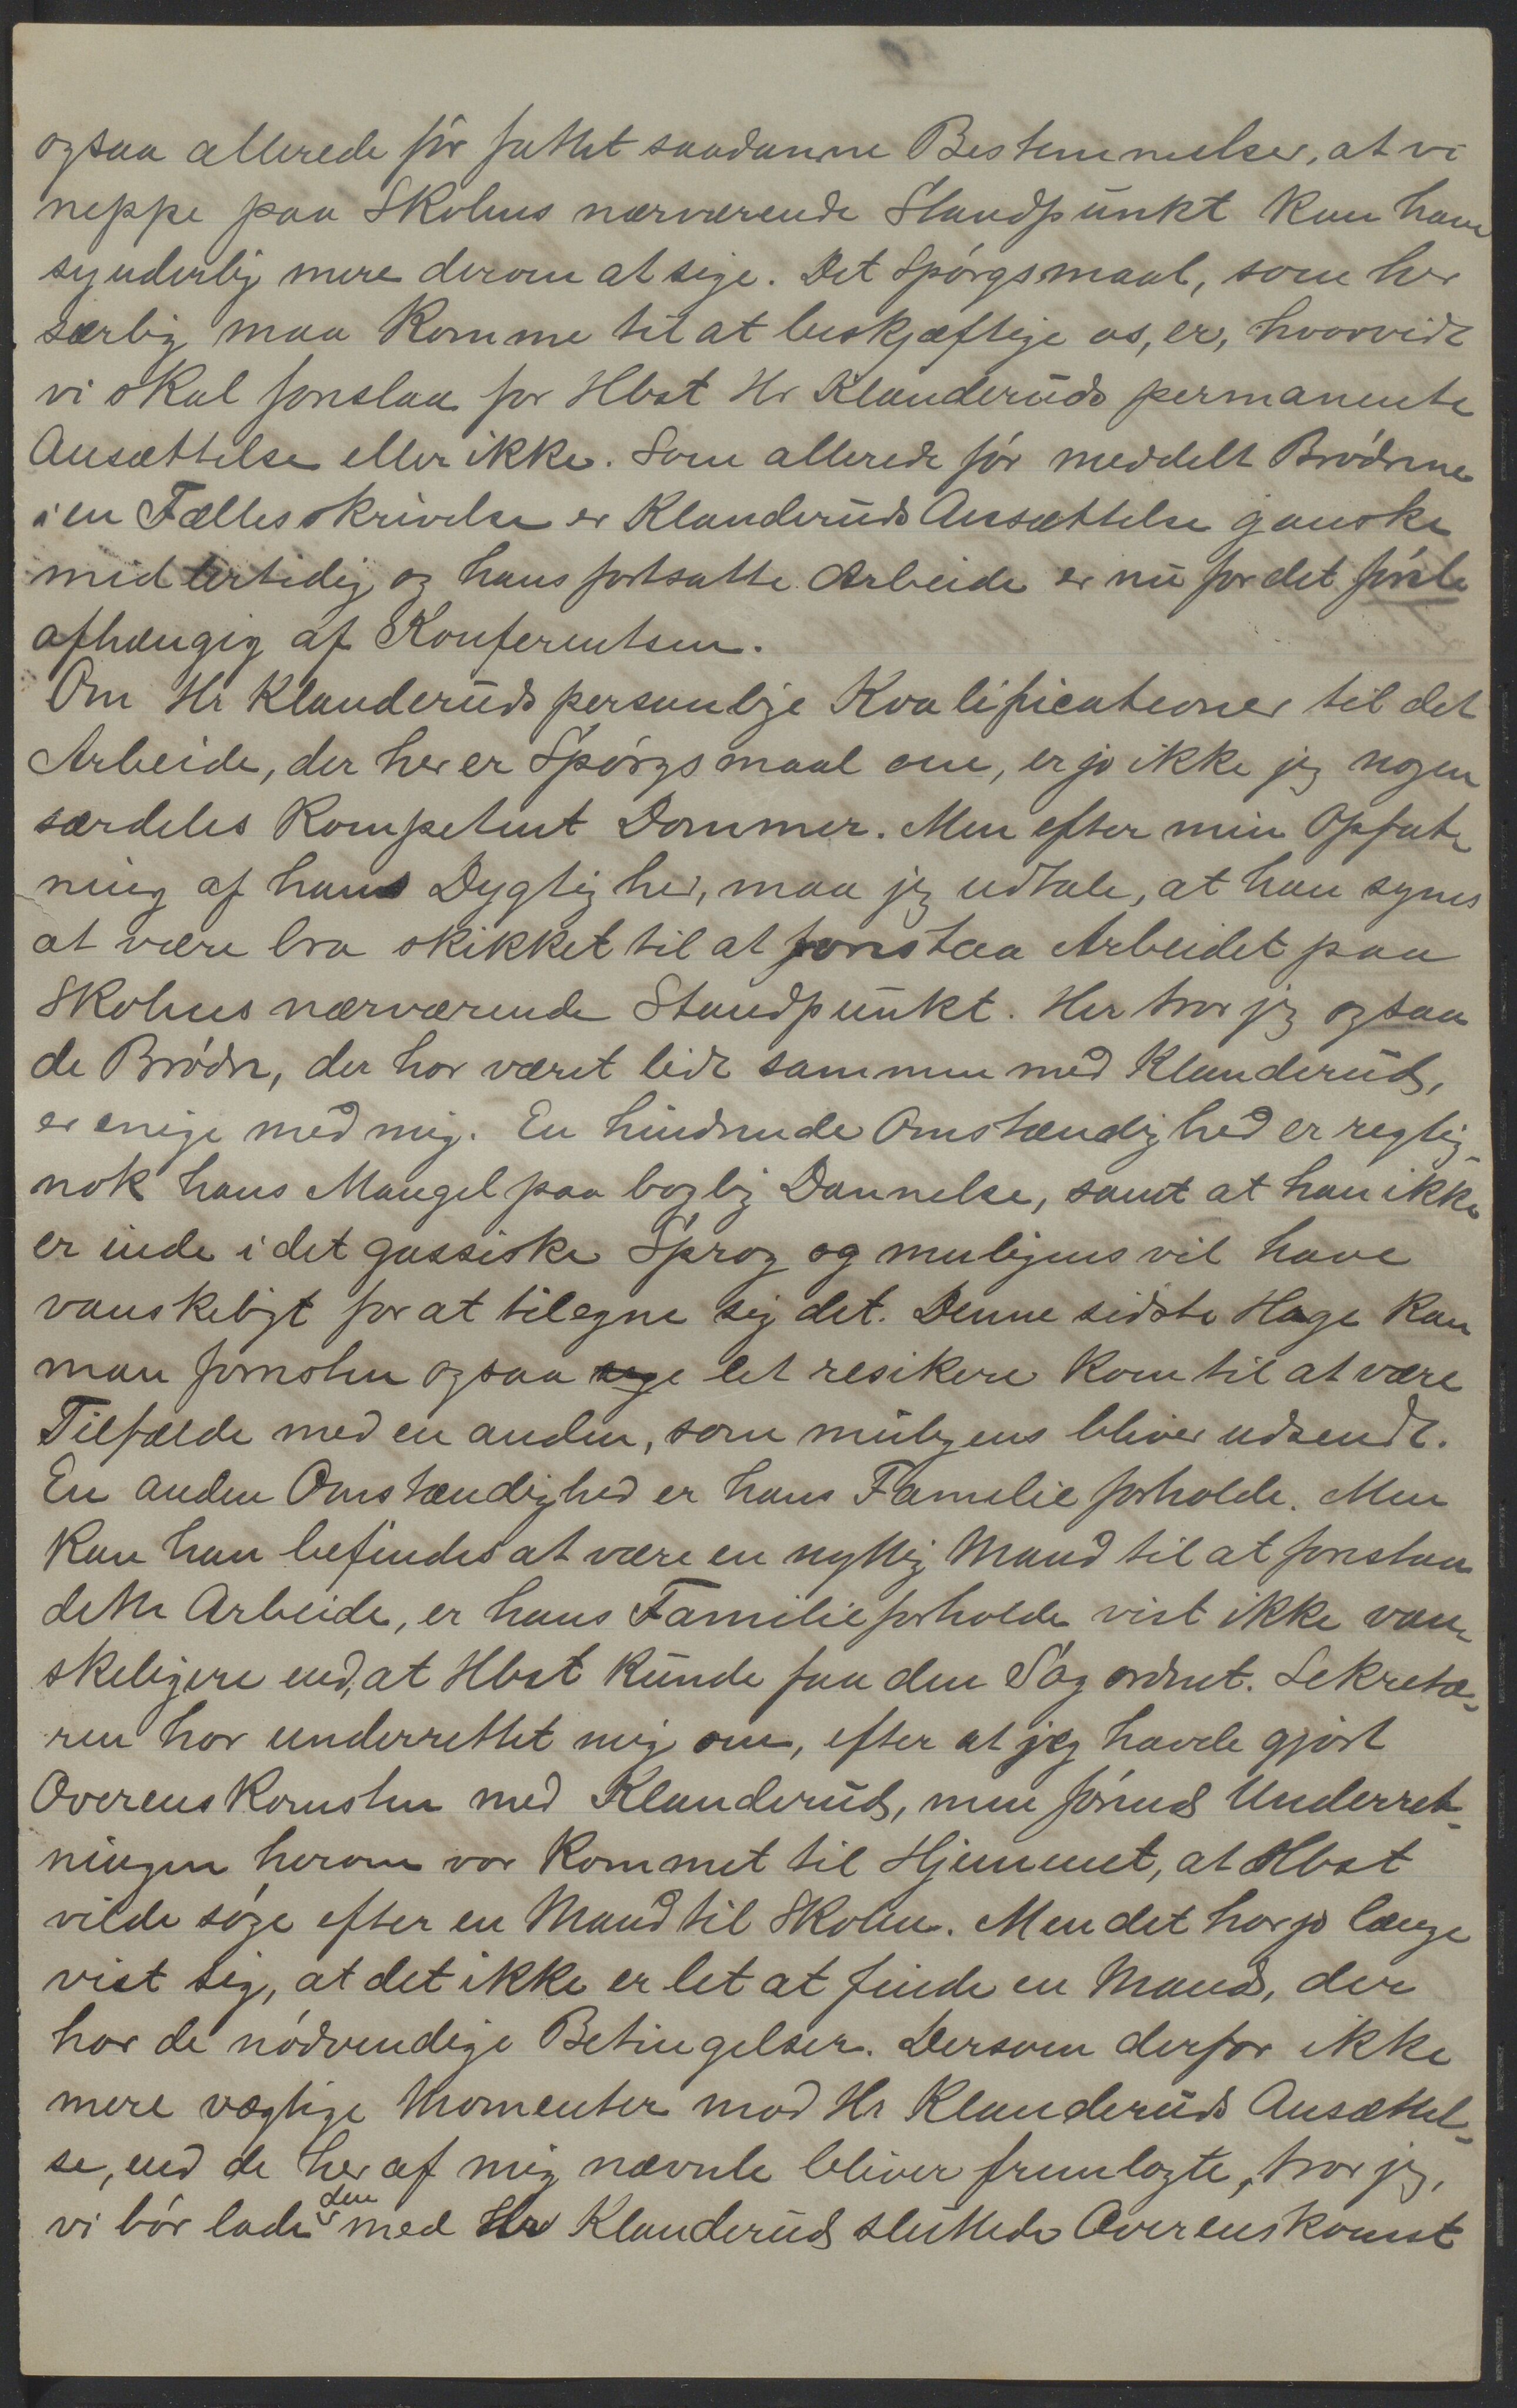 ogsaa allerede før fattet saadanne Bestemmelser, at vi
neppe paa Skolens nærværende Standpunkt kan have
synderlig mere derom at sige. Det Spørgsmaal, som her
særlig maa komme til at beskjæftige os, er, hvorvidt
vi skal foreslaa for Hbst Hr Klanderuds permanente
Ansættelse eller ikke. Som allerede før meddelt Brødrene
i en Fællesskrivelse er Klanderuds Ansættelse ganske
midlertidig og hans fortsatte Arbeide er nu for det første
afhængig af Konferentsen.
Om Hr Klanderuds personlige Kvalificationer til det
Arbeide, der her er Spørgsmaal om, er jo ikke jeg nogen
særdeles kompetent Dommer. Men efter min Opfat-
ning af hans Dygtighed, maa jeg udtale, at han synes
at være bra skikket til at forestaa Arbeidet paa
Skolens nærværende Standpunkt. Her tror jeg ogsaa
de Brødre, der har været lidt sammen med Klanderud,
er enige med mig. En hindrende Omstændighed er regtig-
nok hans Mangel paa boglig Dannelse, samt at han ikke
er inde i det gassiske Sprog og muligens vil have
vanskeligt for at tilegne sig det. Denne sidste Hage kan
man forresten ogsaa let resikere kom til at være
Tilfælde med en anden, som muligens bliver udsendt.
En anden Omstændighed er hans Familieforholde. Men
kan han befindes at være en nyttig Mand til at forestaa
dette Arbeide, er hans Familieforholde vist ikke van-
skeligere end, at Hbst kunde faa den Sag ordnet. Sekretæ-
ren har underrettet mig om, efter at jeg havde gjort
Overenskomsten med Klanderud, men førend Underret-
ningen herom var kommet til Hjemmet, at Hbst
vilde søge efter en Mand til Skolen. Men det har jo længe
vist sig, at det ikke er let at finde en Mand, der
har de nødvendige Betingelser. Dersom derfor ikke
mere vægtige Momenter mod Hr Klanderuds Ansættel-
se, end de her af mig nævnte bliver fremlagte, tror jeg,
vi bør lade den med Hr Klanderud sluttede Overenskomst